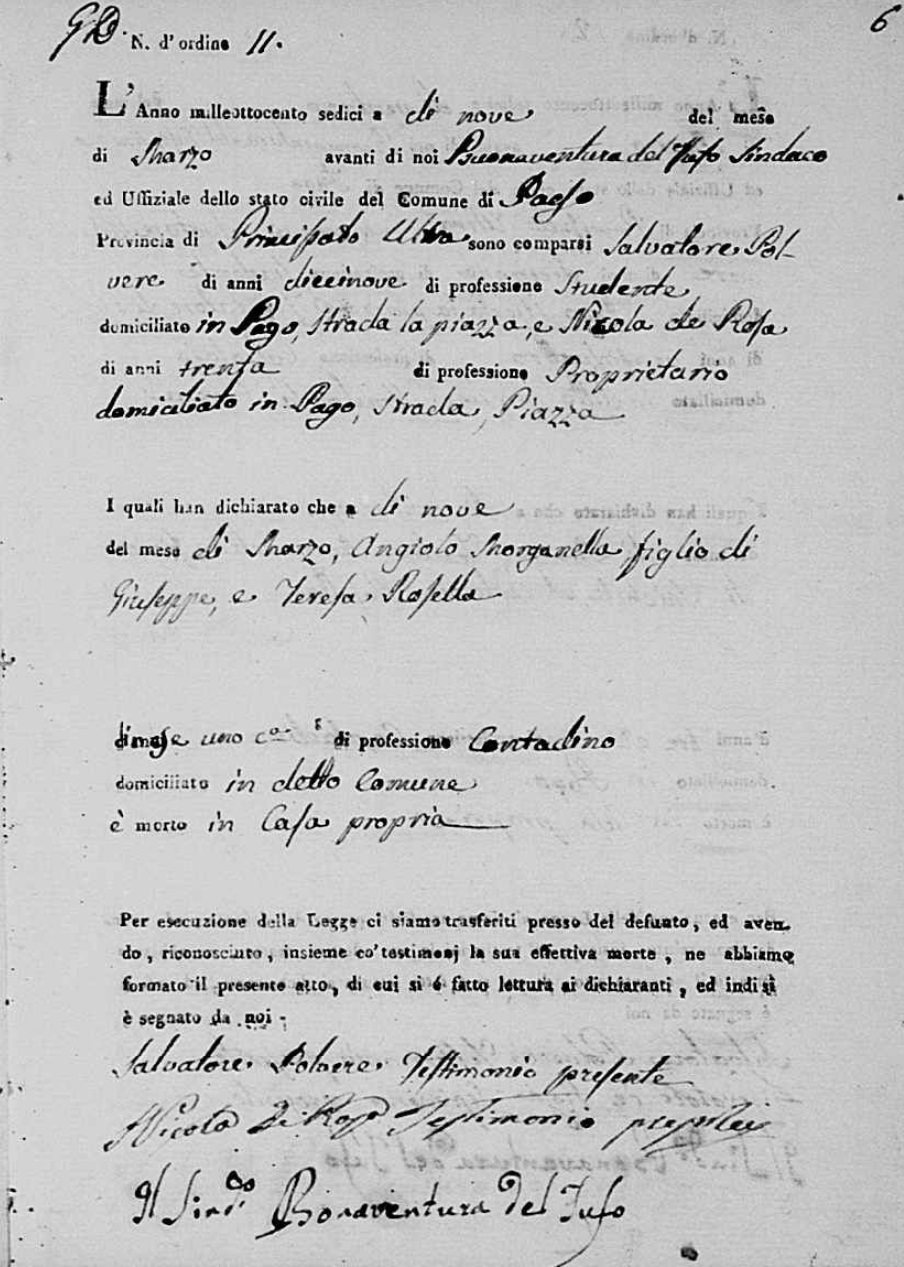 N. d'ordine 11.
6
L'Anno milleottocento sedici a dì nove del mese
di Marzo avanti di noi Buonaventura del Tufo Sindaco
ed Uffiziale dello stato civile del Comune di Pago
Provincia di Principato Ultra sono comparsi Salvatore Pol-
vere di anni diecinove di professione Studente
domiciliato in Pago, Strada la piazza, e Nicola de Rosa
di anni trenta di professione Proprietario
domiciliato in Pago, Strada, Piazza
I quali han dichiarato che a dì nove
del mese di Marzo, Angiolo Morganella figlio di
Giuseppe, e Teresa Rosella
di mese uno di professione Contadino
domiciliato in detto Comune
è morto in Casa propria
Per esecuzione della Legge ci siamo trasferiti presso del defunto, ed aven-
do, riconosciuto, insieme co' testimonj la sua effettiva morte, ne abbiamo
formato il presente atto, di cui si é fatto lettura ai dichiaranti, ed indi si
è segnato da noi -
Salvatore Polvere Testimonio presente
Nicola De Rosa Testimonio
Il Sind.co Bonaventura Del Tufo